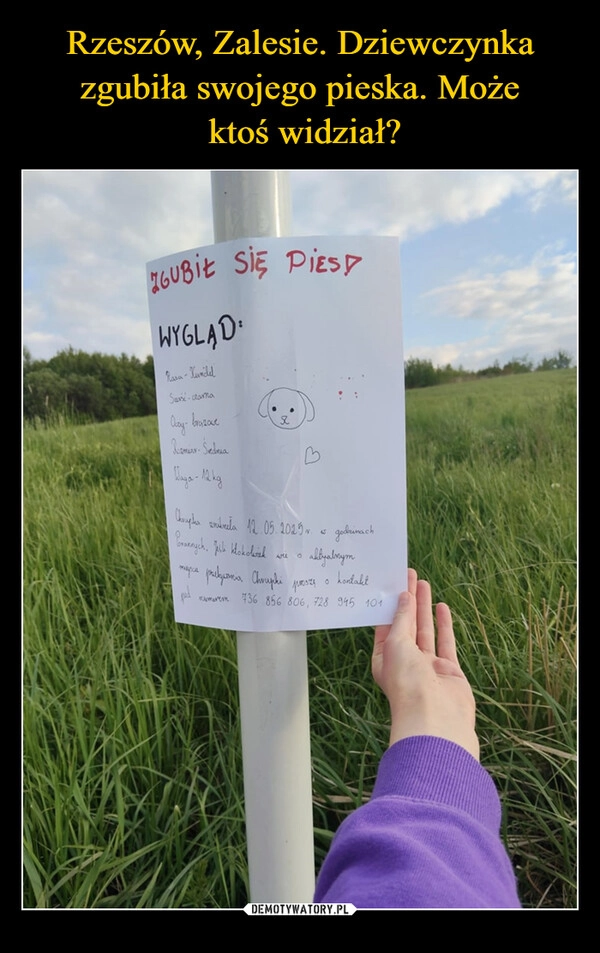 Rzeszów, Zalesie. Dziewczynka
zgubiła swojego pieska. Może
ktoś widział?
ZGUBIŁ SIĘ PIES
WYGLĄD:
Rasa - Kundel
Sierść - czarna
Oczy - brązowe
Rozmiar - Średnia
Waga - 12 kg
Chrupka zniknęła 12.05.2029r. w godzinach
porannych. Jeśli ktokolwiek wie o aktualnym
miejscu przebywania Chrupki proszę o kontakt
pod numerem 736 856 806, 728 945 101
DEMOTYWATORY.PL